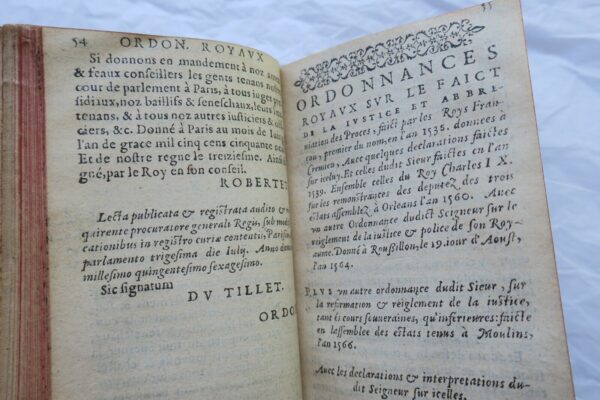 54 ORDON. ROYAVX
Si donnons en mandement à noz amez
& feaux conseillers les gents tenans nostre
cour de parlement à Paris, à tous iuges pre-
sidiux, noz baillifs & seneschaux, leurs lieu-
tenans, & à tous noz autres iusticiers & offi-
ciers, &c. Donné à Paris au mois de
l'an de grace mil cinq cens cinquante
Et de nostre regne le treziesme. Ainsi si-
gné, par le Roy en son conseil.
ROBERTET
Lecta publicata & registrata audito &
quirente procuratore generali Regis, sub modi
cationibus in registro curiæ contentis, Parisiis
parlamento trigesima die Iuly. Anno domini
millesimo quingentesimo sexagesimo.
Sic signatum
DV TILLET.
ORDO
55
ORDONNANCES
ROYAUX SUR LE FAICT
DE LA IVSTICE ET ABBRE-
uiation des Proces, faict par les Roys Fran-
çou, premier du nom, en l'an 1535. données à
Cremieu, Auec quelques declarations faictes
sur iceluy: Et celles dudict Sieur faictes en l'an
1539. Ensemble celles du Roy Charles I X.
sur les remonstrances des deputez des trois
estats assemblez à Orleans l'an 1560. Auec
vn autre Ordonnance dudict Seigneur sur le
reiglement de la iustice & police de son Roy-
aume. Donné à Roußillon, le 19. iour d'Aoust,
l'an 1564.
PLVS vn autre ordonnance dudit Sieur, sur
la reformation & reiglement de la iustice,
tant és cours souueraines, qu'inferieures: faicte
en l'assemblee des estats tenus à Moulins,
l'an 1566.
Auec les declarations & interpretations du-
dit Seigneur sur icelles.